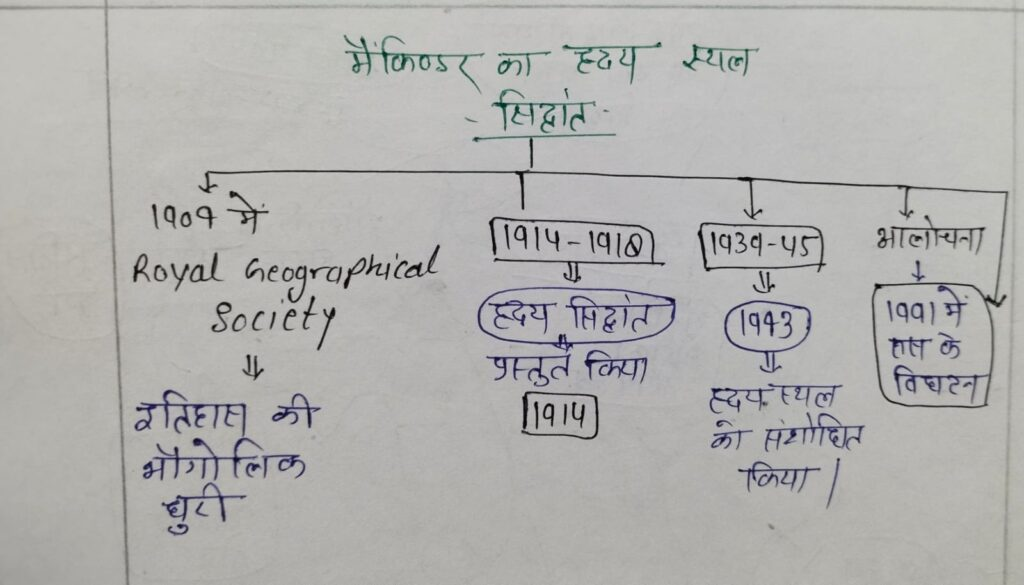 मैकिण्डर का ह्रदय स्थल
- सिद्वांत -
1909 में
Royal Geographical
Society
इतिहास की
भौगोलिक
धुरी
1914-1918
ह्रदय सिद्वांत
प्रस्तुत किया
1914
1939-45
1943
ह्रदय स्थल
को संशोधित
किया |
आलोचना
1991 में
रूस के
विघटन